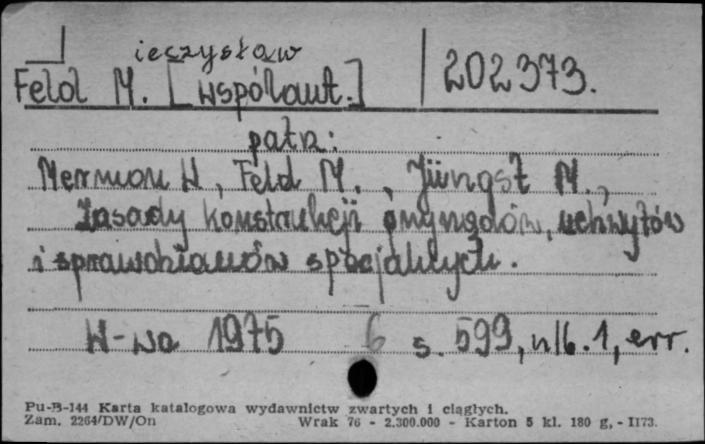 ieczysław
Feld M. [współaut.] 202373.
patrz:
Mermon H, Feld M., Jüngst M.,
Zasady konstrukcji przyrządów, uchwytów
i sprawdzianów specjalnych.
W-wa 1975 6 s. 599, nlb. 1, err.
Pu-B-144 Karta katalogowa wydawnictw zwartych i ciągłych.
Zam. 2264/DW/On Wrak 76 - 2.300.000 - Karton 5 kl. 180 g, - II73.